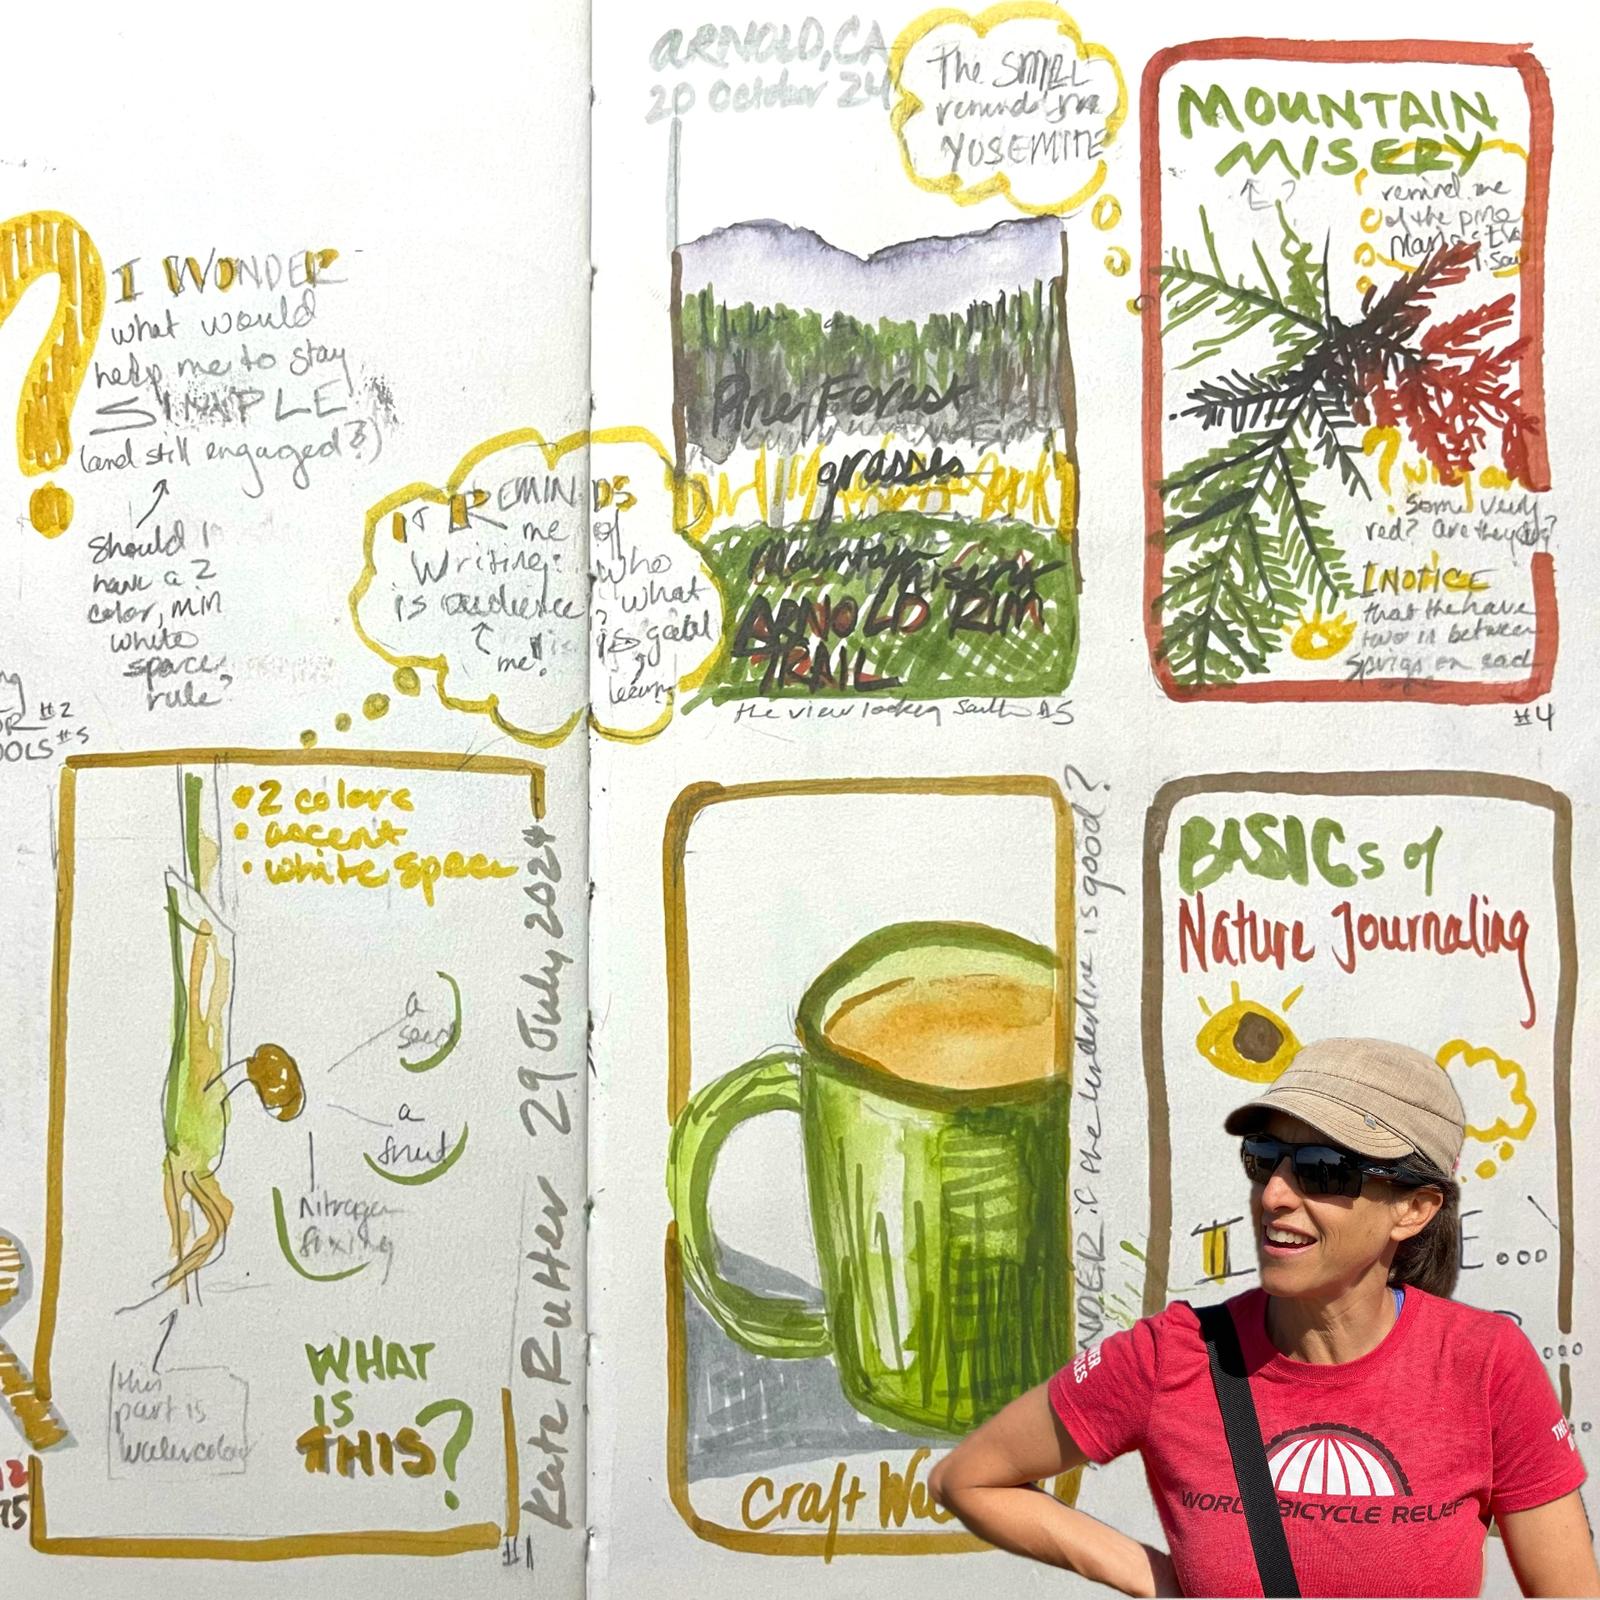 I WONDER
what would
help me to stay
SIMPLE
(and still engaged?)
Should I
have a 2
color, min
white
space
rule?
#2
OOLS #5
IT REMINDS
me of
Writing: who
is audience? what
is goal
me!
learn
ARNOLD, CA
20 October 24
The SMELL
reminds me
YOSEMITE
Pine Forest
grasses
Mountain misery
ARNOLD RIM
TRAIL
the view looking South #5
MOUNTAIN
MISERY
E?
remind me
of the pine
I saw
? why are
some very
red? are they dying?
I NOTICE
that the have
two in between
sprigs on each
#4
• 2 colors
• accent
• white space
a
seed
a
fruit
Nitrogen
fixing
this
part is
watercolour
WHAT
IS
THIS?
#1
Kate Rutter 29 July 2024
12
75
Craft
if the underline is good?
BASICs of
Nature Journaling
I
E...
WORLD BICYCLE RELIEF